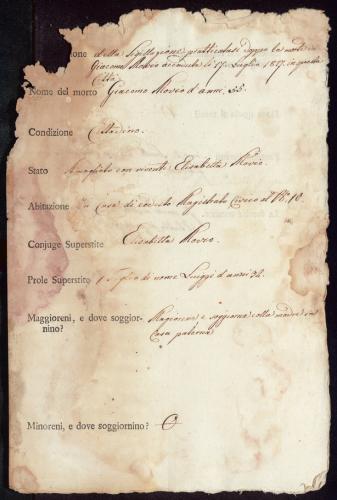 ione della Suggellazione pratticatasi doppo la morte di
Giacomo Rovio accaduta li 17. Luglio 1827. in questa
Città
Nome del morto Giacomo Rovio d'anni 55.
Condizione Cittadino.
Stato Amogliato con vivente Elisabetta Rovio.
Abitazione In Casa di Magistrato Civico al No. 10
Conjuge Superstite Elisabetta Rovio.
Prole Superstite 1 Figlio di nome Luiggi d'anni 32.
Maggioreni, e dove soggior- Magiorene e soggiorna colla madre in
nino? Casa paterna
Minoreni, e dove soggiornino?